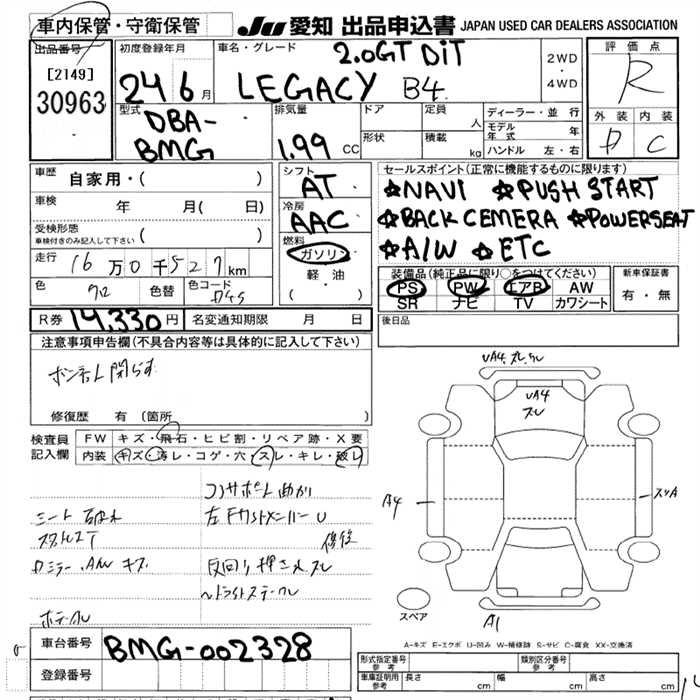 車内保管・守衛保管
JU 愛知 出品申込書 JAPAN USED CAR DEALERS ASSOCIATION
出品番号
[2149]
30963
初度登録年月
24 6月
車名・グレード
2.0GT DiT
LEGACY B4
2WD
・
4WD
評価点
R
外装 内装
D C
型式
DBA-
BMG
排気量
1.99 CC
ドア
形状
定員
人
積載
kg
ディーラー・並行
モデル年式 年
ハンドル 左・右
車歴 自家用・( )
車検 年 月( 日)
受検形態
車検付きのみ記入して下さい ( )
走行 16万0千527km
色 クロ 色替 色コード D4S
シフト
AT
冷房
AAC
燃料
ガソリン
軽・油
( )
セールスポイント(正常に機能するものに限ります)
☆NAVI ☆PUSH START
☆BACK CEMERA ☆POWERSEAT
☆A/W ☆ETC
装備品(純正品に限り○をつけてください)
PS PW エアB AW
SR ナビ TV カワシート
新車保証書
有・無
R券 14,330円 名変通知期限 月 日
後日品
注意事項申告欄(不具合内容等は具体的に記入して下さい)
ボンネット閉らず
修復歴 有(箇所 )
検査員
記入欄
FW キズ・飛石・ヒビ割・リペア跡・X要
内装 キズ・汚レ・コゲ・穴・スレ・キレ・破レ
コアサポート曲がり
シート破れ
左Fサイドメンバー U
修復
Dミラー、A/W キズ
UA4 スレ、ワレ
UA4
スレ
A4
スレA
A1
スペア
A-キズ E-エクボ U-凹み W-補修跡 S-サビ C-腐食 XX-交換済
車台番号 BMG-002328
登録番号
形式指定番号
参考
類別区分番号
参考
車庫証明用
参考
長さ cm 幅 cm 高さ cm